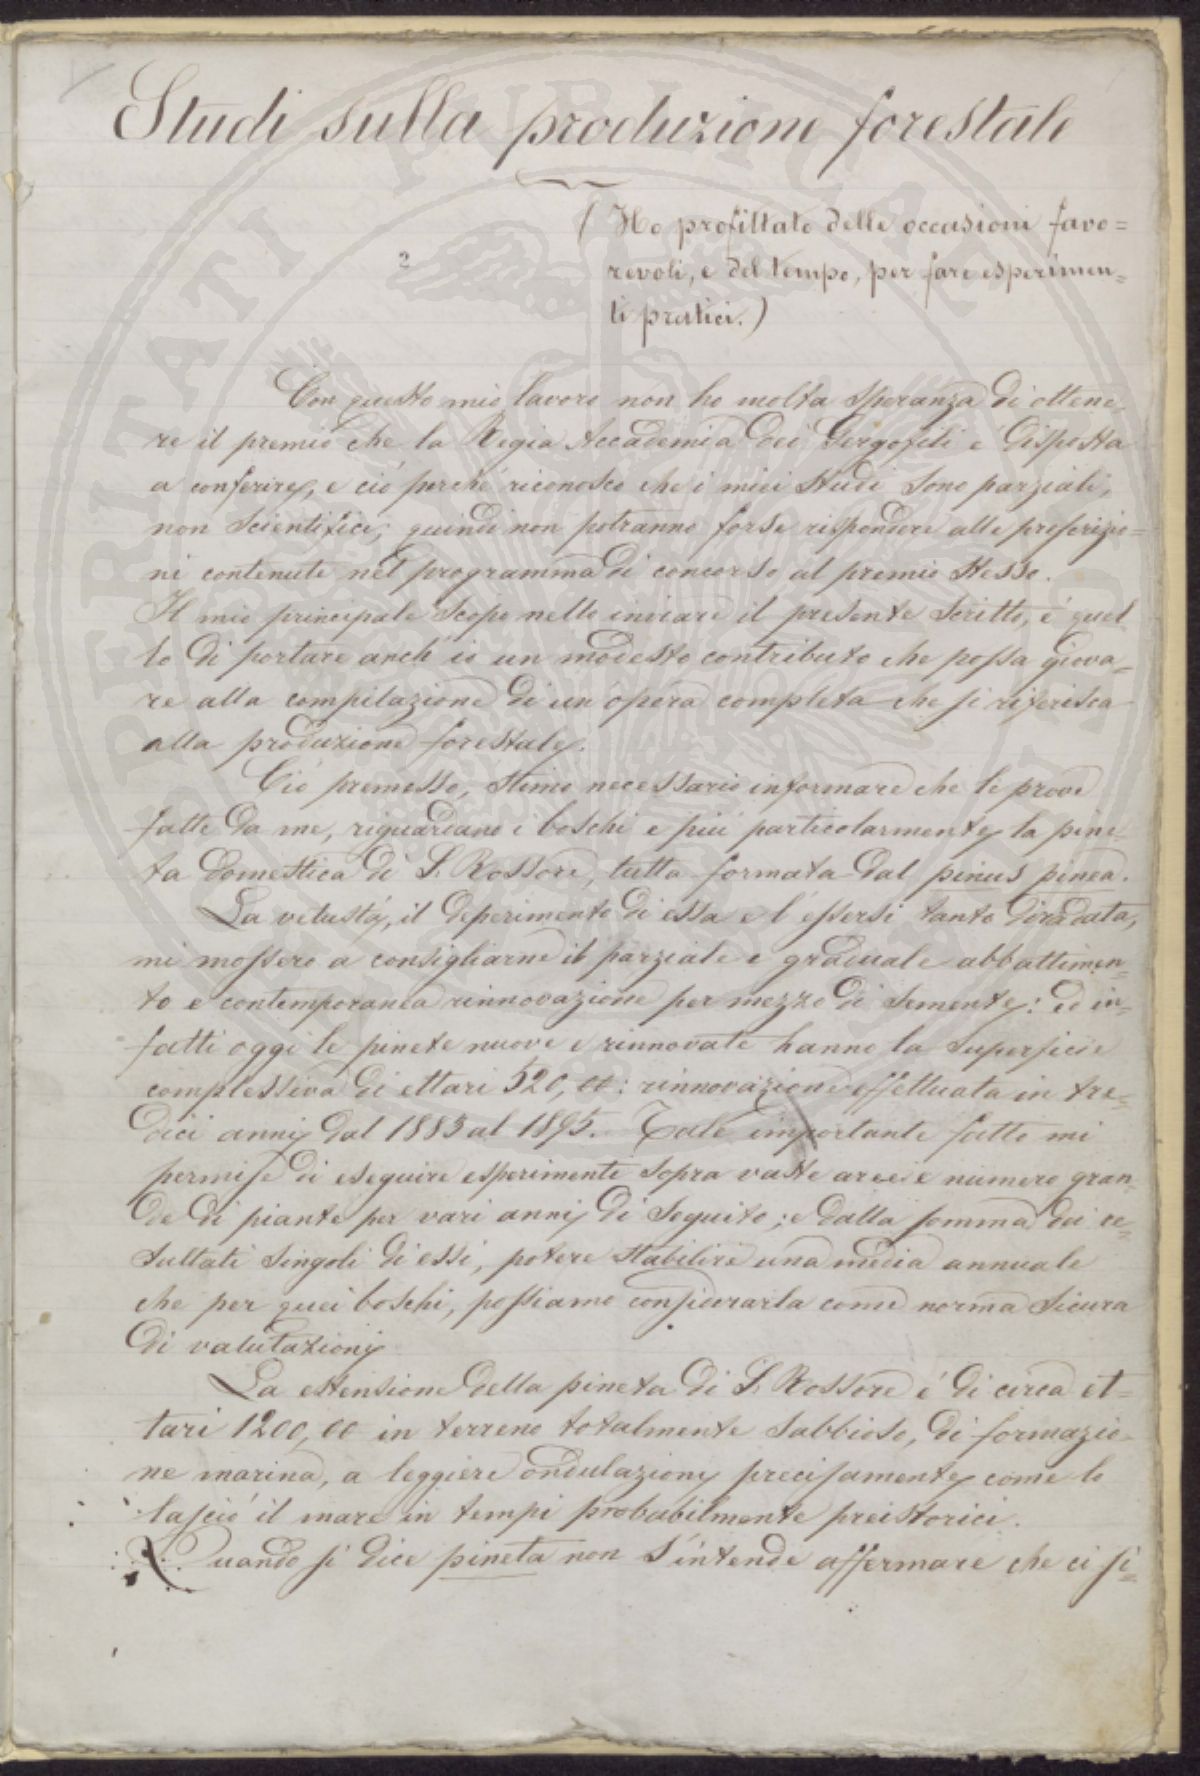 Studi sulla produzione forestale
(Ho profittato delle occasioni favo=
revoli, e del tempo, per fare esperimen=
ti pratici.)
2
Con questo mio lavoro non ho molta speranza di ottene
re il premio che la Regia Accademia dei Gergofili é disposta
a conferire, e ció perché riconosco che i miei studi sono parziali,
non scientifici; quindi non potranno forse rispondere alle prescrizio=
ni contenute nel programma di concorso al premio stesso.
Il mio principale scopo nello inviare il presente scritto, é quel
lo di portare anch'io un modesto contributo che possa giova=
re alla compilazione di un'opera completa che si riferisca
alla produzione forestale.
Ció premesso, stimo necessario informare che le prove
fatte da me, riguardano i boschi e piú particolarmente la pine=
ta domestica di S. Rossore, tutta formata dal pinus pinea.
La vetustá, il deperimento di essa e l'essersi tanto diradata,
mi mossero a consigliarne il parziale e graduale abbattimen=
to e contemporanea rinnovazione per mezzo di semente: ed in=
fatti oggi le pinete nuove e rinnovate hanno la superficie
complessiva di ettari 520,00: rinnovazione effettuata in tre=
dici anni dal 1883 al 1895. Tale importante fatto mi
permise di eseguire esperimenti sopra vaste aree e numero gran=
de di piante per vari anni di seguito; e dalla somma dei re=
sultati singoli di essi, potere stabilire una media annuale
che per quei boschi, possiamo considerarla come norma sicura
di valutazioni
La estensione della pineta di S. Rossore é di circa et=
tari 1200,00 in terreno totalmente sabbioso, di formazio=
ne marina, a leggiere ondulazioni precisamente come lo
lasció il mare in tempi probabilmente preistorici.
Quando si dice pineta non s'intende affermare che ci si=
PUBLICAE
PROSPERITATI